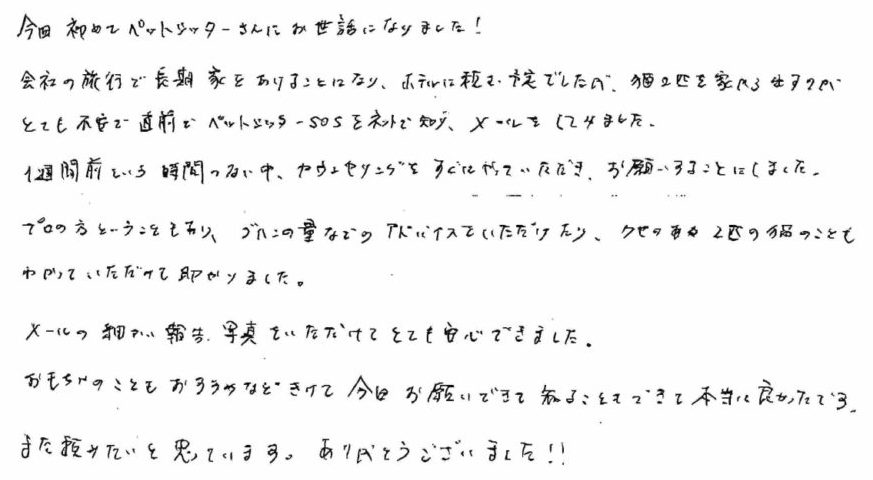 今回 初めてペットシッターさんにお世話になりました!
会社の旅行で長期 家をあけることになり、ホテルに頼む予定でしたが、猫2匹を家から出すのが
とても不安で直前でペットシッターSOSをネットで知り、メールをしてみました。
1週間前という時間のない中、カウンセリングをすぐにやっていただき、お願いすることにしました。
プロの方ということもあり、ゴハンの量などのアドバイスをいただけたり、クセのある2匹の猫のことも
わかっていただけて助かりました。
メールの細かい報告、写真をいただけてとても安心できました。
おもちゃのことも おそうじなどきけて 今回 お願いできて 知ることもできて 本当に良かったです。
また頼みたいと思っています。ありがとうございました!!